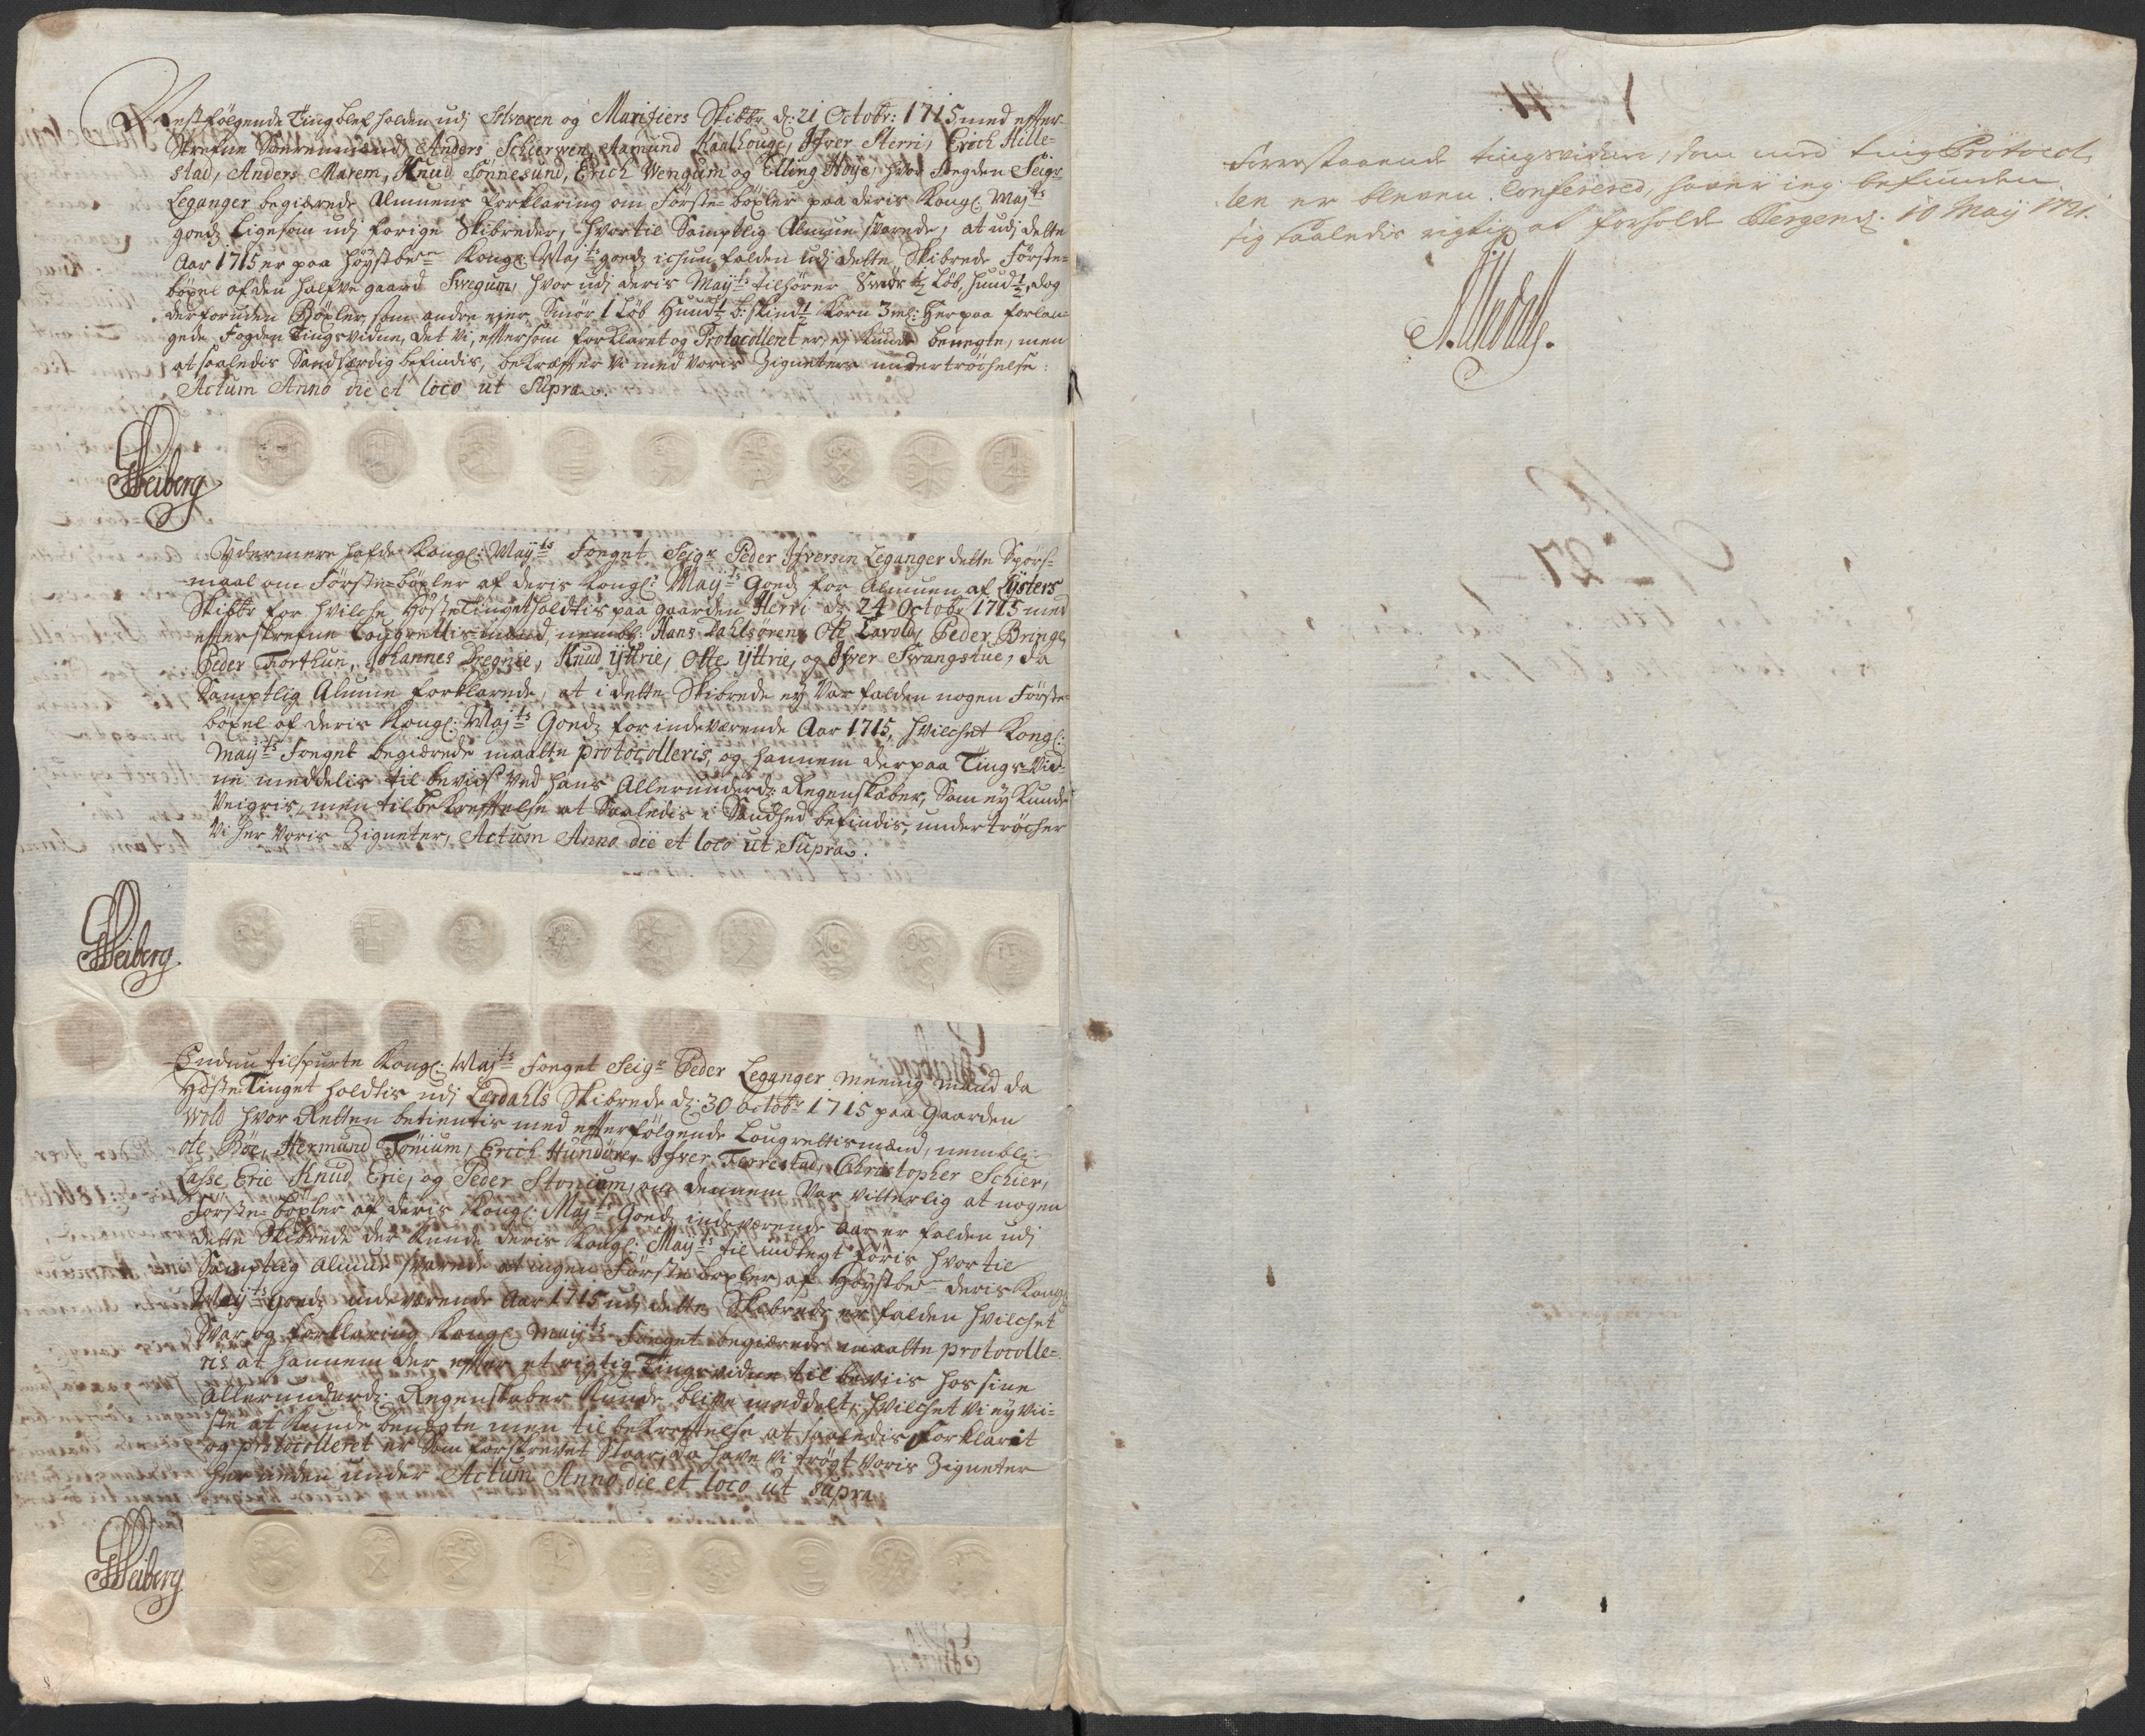 Nestfølgende Tingblef holden udj Solveren og Marifiers Skibbr d: 21 Octobr: 1715 med effter-
Skrefne Sorenmænd Anders Schierven, Aamund Kaalhouge, Ifver Herri, Erich Hille-
stad, Anders Marem, Knud Sønnesund, Erich Wengum og Elling Høye, hvor Fogden Seigr
Leganger begiærede Almuens forklaring om Første-böxler paa deris Kongl: Majts
goedz Ligesom udj forige Skibreder, hvortil Samptlig Almue svarede, at udj dette
Aar 1715 er paa höystber Kongl: Majts goedz ichun falden udj dette Skibrede Første-
böxel af den halfve gaard Svegum, hvor udj deris Mayts tilhører Smør ½ Løb, huud ½, dog
derforuden Böxler som andre ejer Smør 1 Løb Huud ½ b: skind ½ Korn 3 ml: Herpaa forlan-
gede Fogden Tingsvidne, Det vi, effter som forklaret og Protocolleret er, ej kunde benegte, men
at saaledis Sandfærdig befindis, bekræffter vi med voris Zigneters undertröchelse:
Actum Anno die et loco ut Supra.
Heiberg
Ydermere hafde Kongl: Mayts Foeget Seigr Peder Ifversen Leganger dette Spörs-
maal om Første-böxler af deris Kongl: Mayts Goedz for Almuen af Lysters
Skibbr for hvilche Höste Tinget holdtis paa gaarden Herri d: 24 Octobr 1715 med
effterskrefne Lougrettismænd, nembl: Hans Dahlsøren, Ole Larold, Peder Bringe,
Peder Forthun, Johannes Dregnie, Knud ÿttrie, Olle ÿttrie, og Ifver Svangstue, da
Samptlig Almue forklarede, at i dette Skibrede ey var falden nogen Første-
böxel af deris Kongl: Majts Goedz for indeværende Aar 1715, hvilchet Kongl:
Mayts Foeget begiærede maatte protocolleris, og hannem derpaa Tings-Vid-
ne meddelis til beviis ved hans Allerunderd: Regenskaber, Som ey kunde
Veigris, men til bekrefftelse at Saaledis i Sandhed befindis, undertröcher
Vi her voris Zigneter, Actum Anno die et loco ut Supra.
Heiberg.
Endnu tilspurte Kongl: Majts Foeget Seigr Peder Leganger meenig mand da
Höste Tinget holdtis udj Lerdahls Skibrede d: 30 octobr 1715 paa Gaarden
Wold hvor Retten betientis med effterfølgende Lougrettismænd, nembl:
Ole Böe, Hermund Tönium, Erich Hundöre, Ifver Ferrestad, Christopher Schier,
Lasse Erie Knud Erie, og Peder Stonium, om dennem var vitterlig at nogen
Første-böxler af deris Kongl: Majts Goedz indeværende aar er falden udj
dette Skibrede der kunde deris Kongl: Mayts til indtegt føris hvortil
Samptlig Almue svarede at ingen Første böxler af Höystber deris Kongl
Mayts Goedz indeværende Aar 1715 udj dette Skibrede er falden hvilchet
Svar og forklaring Kongl: Mayts Foeget begiærede maatte protocolle-
ris at hannem der effter et rigtig Tingsvidne til beviis hos sine
Allerunderd: Regenskaber kunde blive meddelt, hvilchet vi ey vii-
ste at kunde benegte men til bekrefftelse at saaledis forklaret
og protocolleret er som forskrevet Staar, da have Vi trögt voris Zigneter
her neden under Actum Anno die et loco ut supra
Heiberg
Forestaaende tingsvidne, som med ting Protocol
len er bleven Confereret, haver ieg befunden
rigtig saaledis rigtig at forholde Bergen d: 10 Maÿ 1721.
No 27